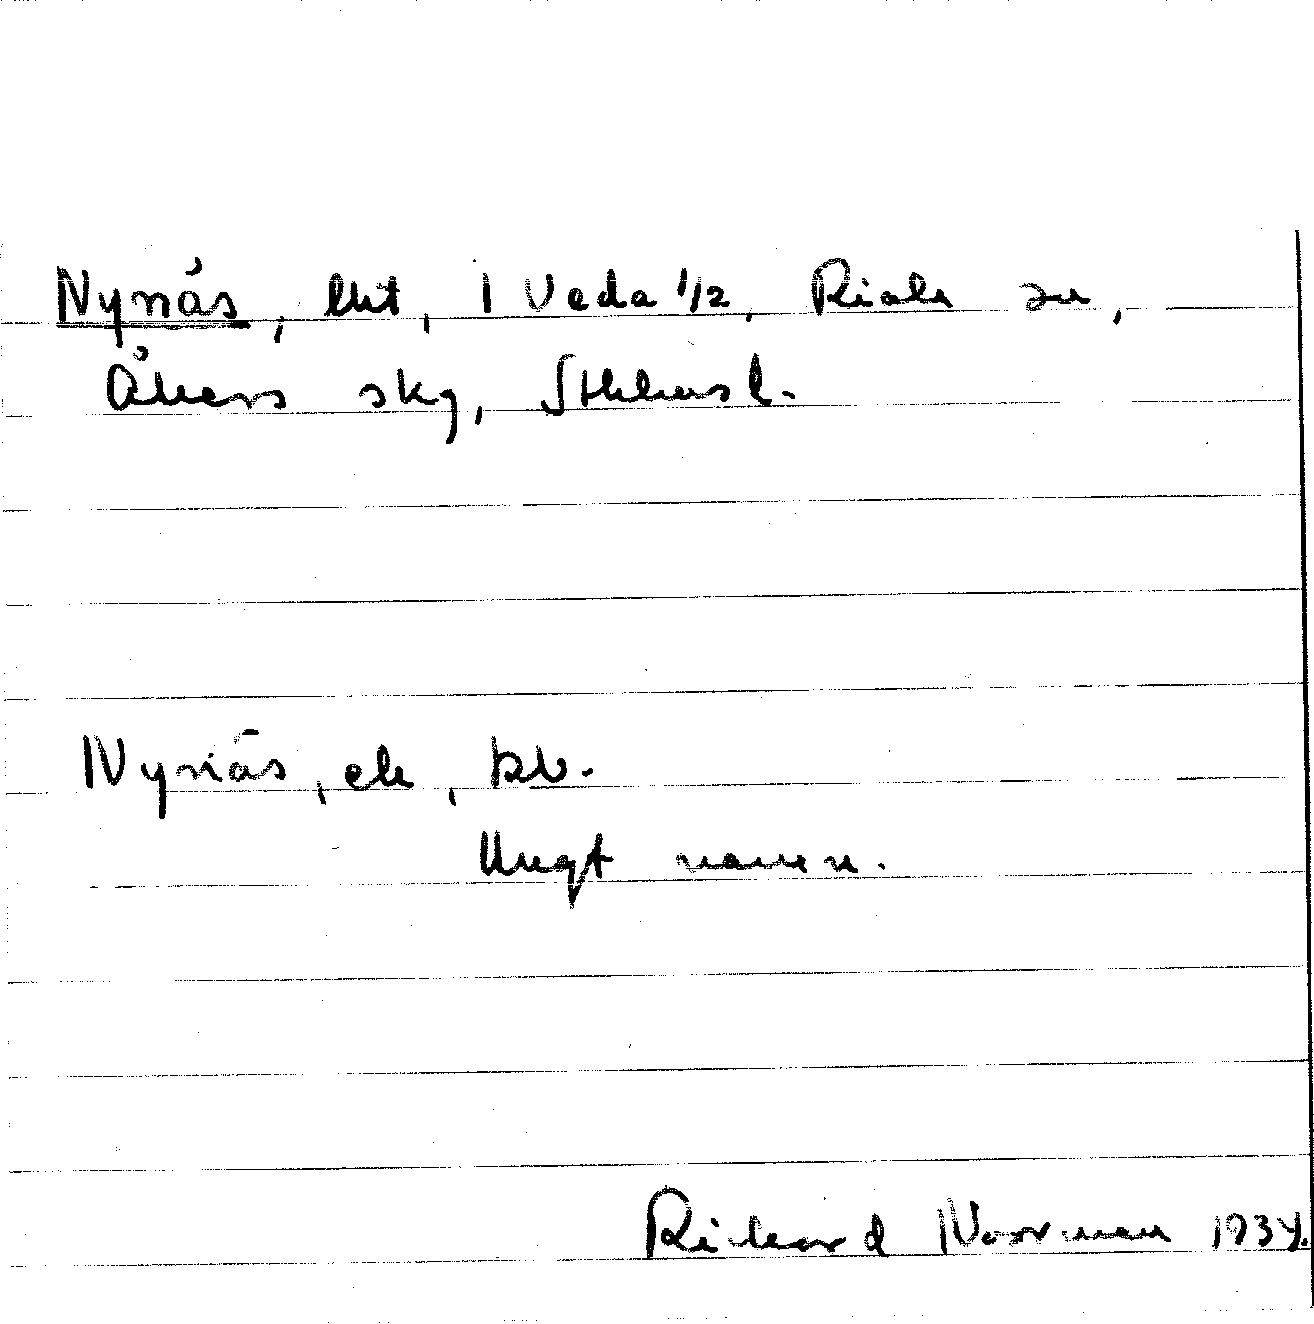 Nynäs, lht, 1 Veda 1/2, Riala sn,
Åkers skg, Sthlmsl.
Nynäs, ek, kb.
Ungt namn.
Rickard Noorman 1934.